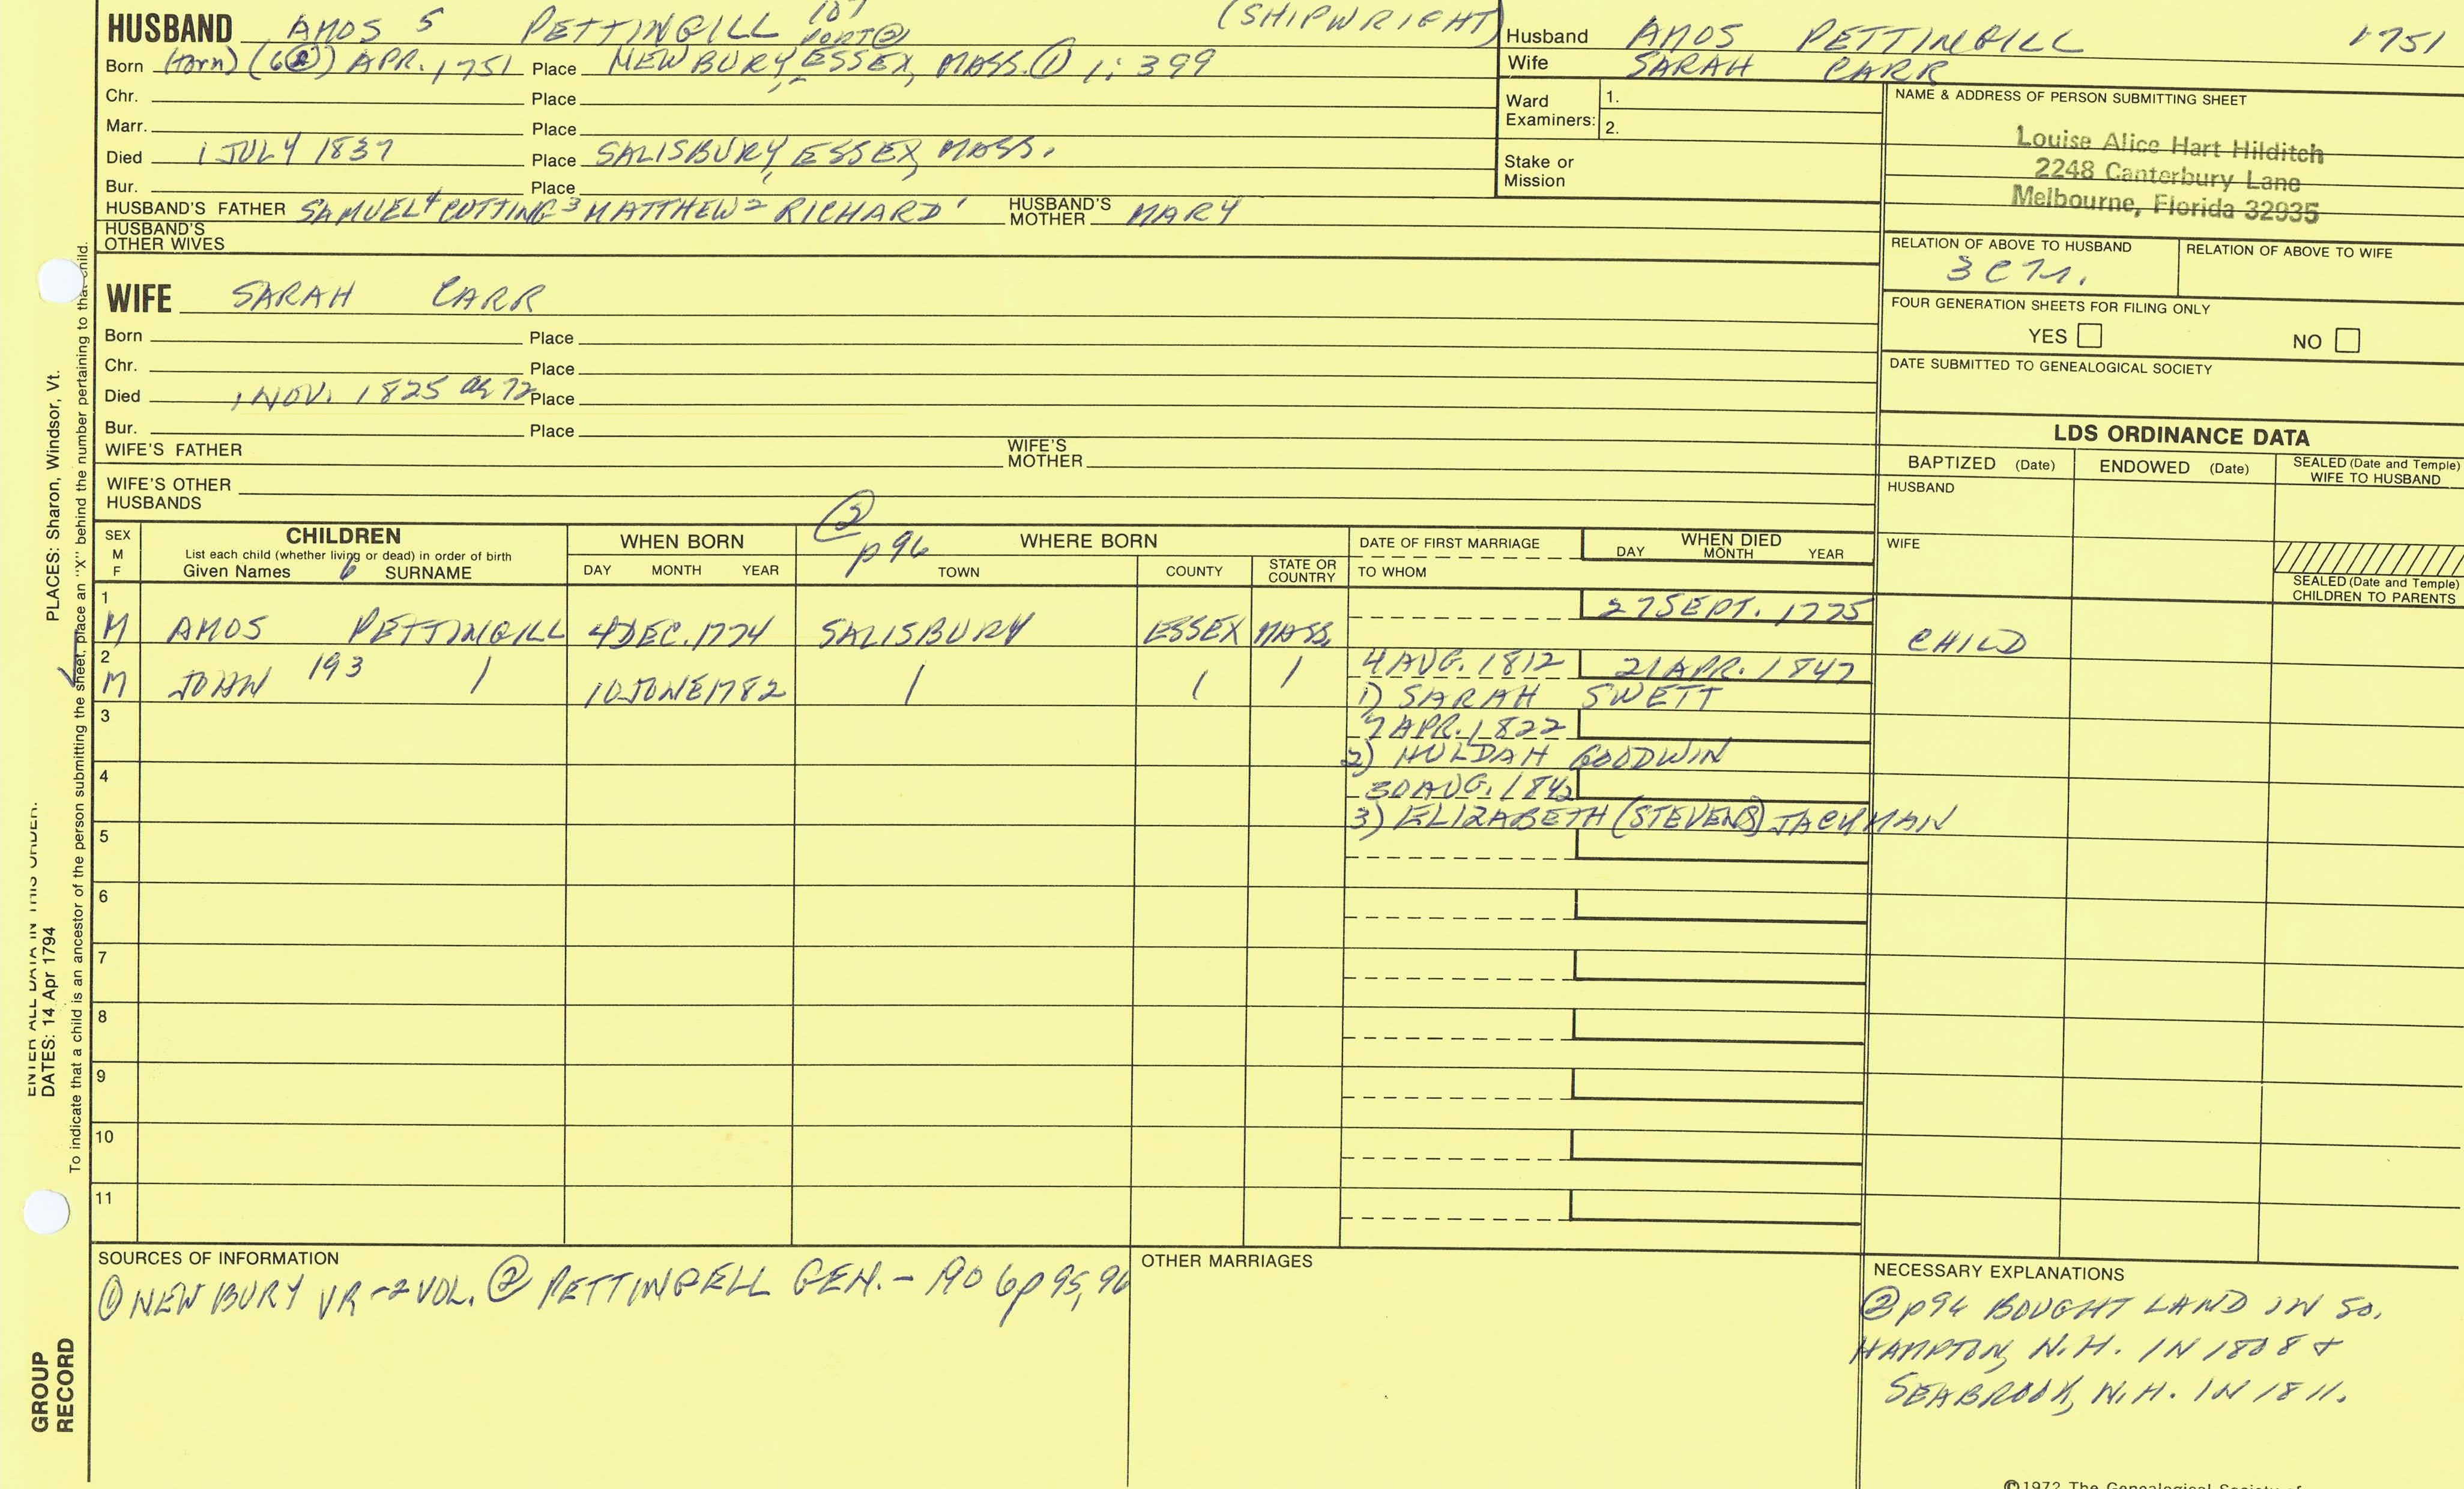 HUSBAND AMOS 5 PETTINGILL 107 (SHIPWRIGHT)
PORT②
Born (torn) (6②) APR. 1751 Place NEWBURY, ESSEX, MASS. ① 1:399
Chr. Place
Marr. Place
Died 1 JULY 1837 Place SALISBURY, ESSEX, MASS.
Bur. Place
HUSBAND'S FATHER SAMUEL 4 CUTTING 3 MATTHEW 2 RICHARD 1 HUSBAND'S MOTHER MARY
HUSBAND'S OTHER WIVES
Husband AMOS PETTINGILL 1751
Wife SARAH CARR
Ward Examiners: 1.
2.
Stake or Mission
NAME & ADDRESS OF PERSON SUBMITTING SHEET
Louise Alice Hart Hilditch
2248 Canterbury Lane
Melbourne, Florida 32935
RELATION OF ABOVE TO HUSBAND RELATION OF ABOVE TO WIFE
FOUR GENERATION SHEETS FOR FILING ONLY
YES NO
DATE SUBMITTED TO GENEALOGICAL SOCIETY
WIFE SARAH CARR
Born Place
Chr. Place
Died 1 NOV. 1825 ae 72 Place
Bur. Place
WIFE'S FATHER WIFE'S MOTHER
WIFE'S OTHER HUSBANDS
LDS ORDINANCE DATA
BAPTIZED (Date) ENDOWED (Date) SEALED (Date and Temple) WIFE TO HUSBAND
HUSBAND
WIFE
SEALED (Date and Temple) CHILDREN TO PARENTS
② p96
SEX M F CHILDREN WHEN BORN WHERE BORN DATE OF FIRST MARRIAGE WHEN DIED
List each child (whether living or dead) in order of birth DAY MONTH YEAR
Given Names 6 SURNAME DAY MONTH YEAR TOWN COUNTY STATE OR COUNTRY TO WHOM
1 27 SEPT. 1775
M AMOS PETTINGILL 4 DEC. 1774 SALISBURY ESSEX MASS. CHILD
2 4 AUG. 1812 21 APR. 1847
M JOHN 193 / 10 JUNE 1782 / / / 1) SARAH SWETT
3 7 APR. 1822
2) HULDAH GOODWIN
4 30 AUG. 1842
3) ELIZABETH (STEVENS) JACKMAN
5
6
7
8
9
10
11
SOURCES OF INFORMATION
① NEWBURY VR - 2 VOL. ② PETTINGELL GEN. - 1906 p 95, 96
OTHER MARRIAGES
NECESSARY EXPLANATIONS
② p96 BOUGHT LAND IN SO.
HAMPTON, N.H. IN 1808 &
SEABROOK, N.H. IN 1811.
©1972 The Genealogical Society of
ENTER ALL DATA IN THIS ORDER:
PLACES: Sharon, Windsor, Vt.
DATES: 14 Apr 1794
To indicate that a child is an ancestor of the person submitting the sheet, place an "X" behind the number pertaining to that child.
GROUP
RECORD